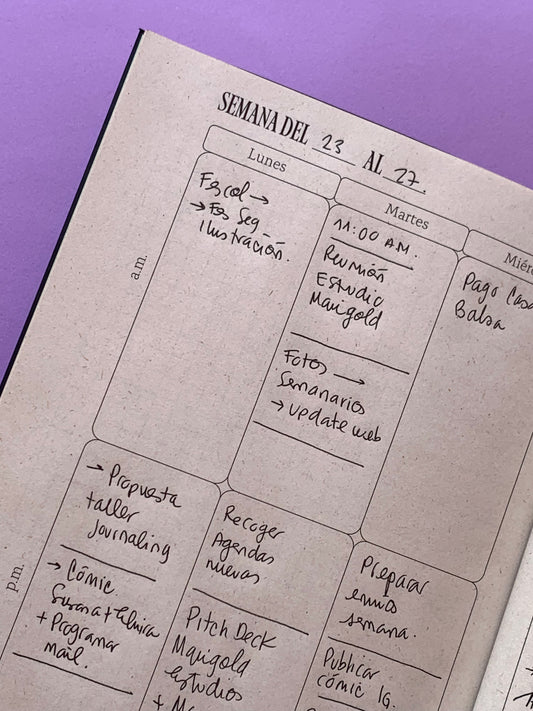 SEMANA DEL 23 AL 27.
Lunes
Martes
Miérc
a.m.
Fescol →
→ Fes Seg_
Ilustración.
11:00 AM.
Reunión
Estudio
Marigold
Fotos →
Semanarios
→ update web
Pago Casa
Balsa
p.m.
→ Propuesta
taller
Journaling
→ Cómic
Susana + Elvira
+ Programar
mail.
Recoger
Agendas
nuevas
Pitch Deck
Marigold
estudios
Preparar
envíos
semana.
Publicar
cómic IG.